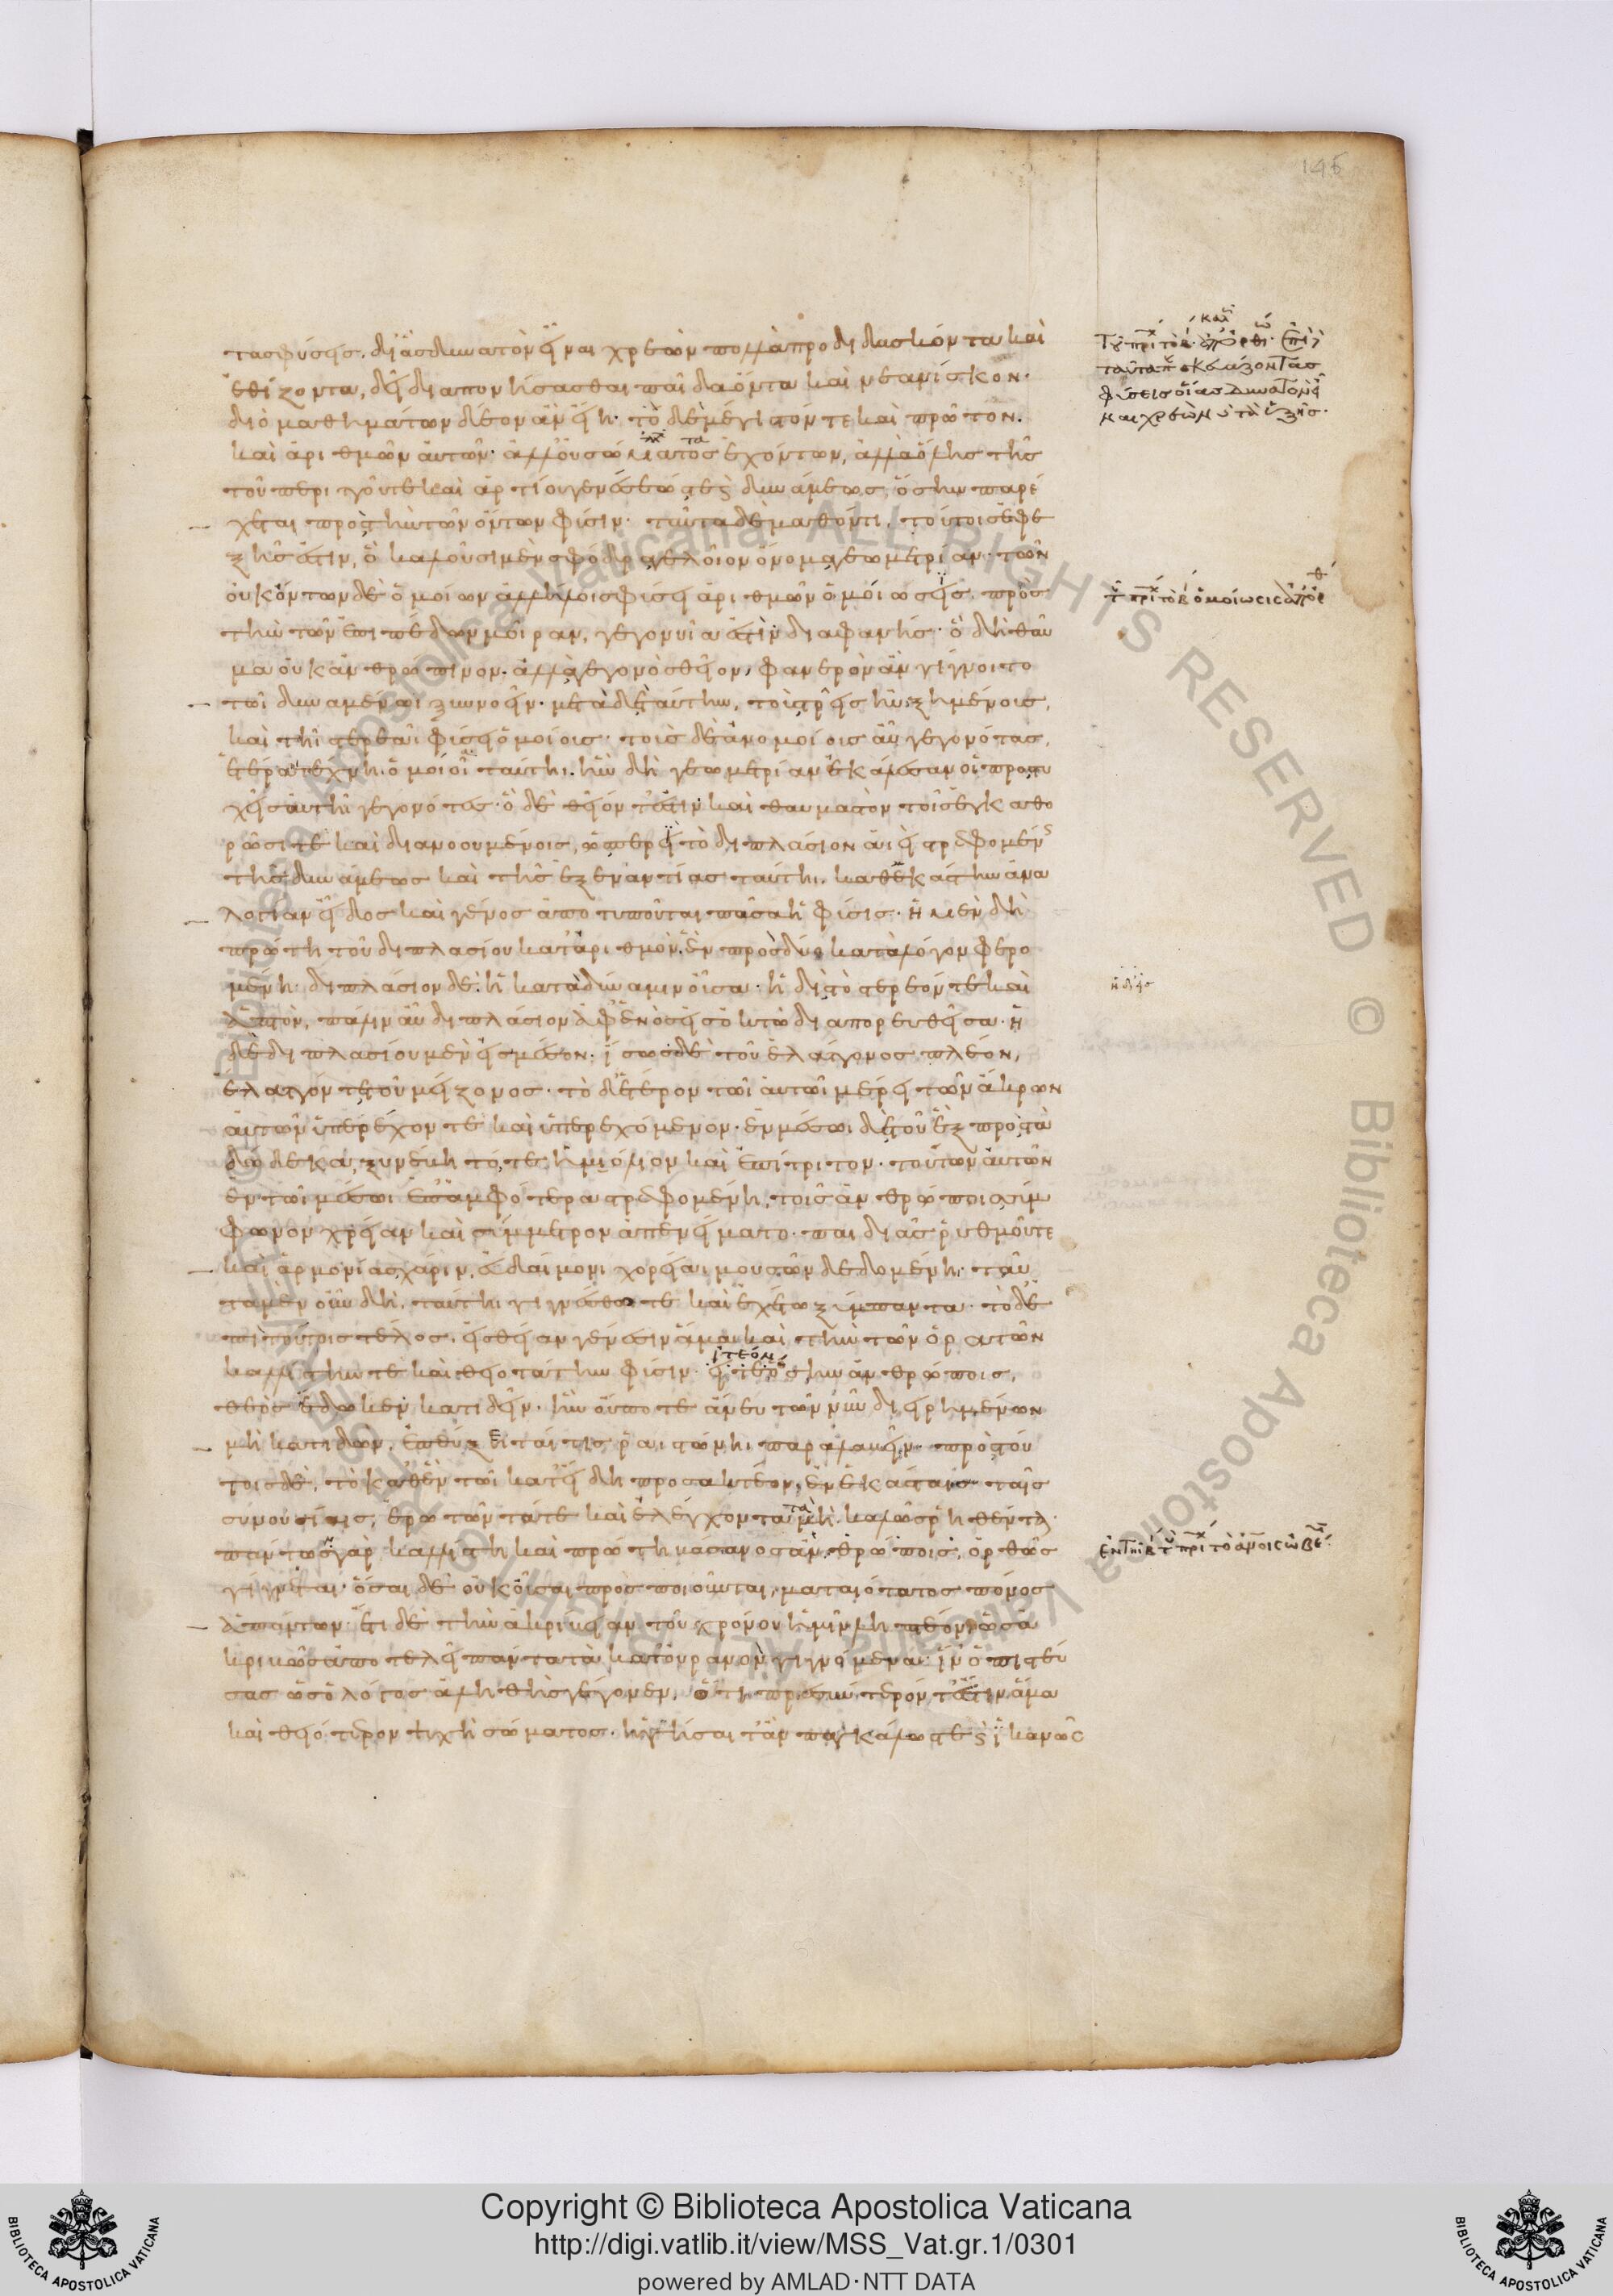 146
τασφύσεις. δι᾽ ἃς δυνατὸν εἶναι χρεὼν πολλὰ προδιδάσκοντα καὶ
ἐθίζοντα, δεῖ διαπονήσασθαι παῖδα ὄντα καὶ νεανίσκον.
διὸ μαθημάτων δέον ἂν εἴη· τὸ δὲ μέγιστόν τε καὶ πρῶτον.
καὶ ἀριθμῶν αὐτῶν· ἀλλ᾽ οὐ σώματος ἐχόντων, ἀλλὰ ὅλης τῆς
τοῦ περιττοῦ τε καὶ ἀρτίου γενέσεώς τε καὶ δυνάμεως, ὅσην παρέ
χεται πρὸς τὴν τῶν ὄντων φύσιν· ταῦτα δὲ μαθόντι, τούτοις ἐφε
ξῆς ἐστιν, ὃ καλοῦσι μὲν σφόδρα γελοῖον ὄνομα γεωμετρίαν· τῶν
οὐκ ὄντων δὲ ὁμοίων ἀλλήλοις φύσει ἀριθμῶν ὁμοίωσις πρὸς
τὴν τῶν ἐπιπέδων μοῖραν, γεγονυῖα ἐστὶν διαφανής· ὃ δὴ θαῦ
μα οὐκ ἀνθρώπινον· ἀλλὰ γεγονὸς θεῖον, φανερὸν ἂν γίγνοιτο
τῶι δυναμένωι ξυννοεῖν· μετὰ δὲ ταύτην, τοὺς τρεῖς ηὐξημένους,
καὶ τῆι στερεᾶι φύσει ὁμοίους· τοὺς δὲ ἀνομοίους αὖ γεγονότας,
ἑτέραι τέχνηι ὁμοιοῖ ταύτηι. ἣν δὴ γεωμετρίαν ἐκάλεσαν οἱ προστυ
χεῖς αὐτῆι γεγονότες· ὃ δὲ θεῖόν τ᾽ ἐστιν καὶ θαυμαστὸν τοῖς ἐγκαθο
ρῶσί τε καὶ διανοουμένοις, ὡς περὶ τὸ διπλάσιον ἀεὶ στρεφομένης
τῆς δυνάμεως καὶ τῆς ἐξ ἐναντίας ταύτηι. καθ᾽ ἑκάστην ἀνα
λογίαν εἶδος καὶ γένος ἀποτυποῦται πᾶσα ἡ φύσις· ἡ μὲν δὴ
πρώτη τοῦ διπλασίου κατ᾽ ἀριθμὸν, ἓν πρὸς δύο κατὰ λόγον φερο
μένη· διπλάσιον δὲ ἡ κατὰ δύναμιν οὖσα· ἡ δ᾽ εἰς τὸ στερεόν τε καὶ
ἁπτὸν, πάλιν αὖ διπλάσιον ἀφ᾽ ἑνὸς εἰς ὀκτὼ διαπορευθεῖσα· ἡ
δὲ διπλασίου μὲν εἰς μέσον· ἴσως δὲ τοῦ ἐλάττονος πλέον,
ἔλαττόν τε τοῦ μείζονος· τὸ δ᾽ ἕτερον τῶι αὐτῶι μέρει τῶν ἄκρων
αὐτῶν ὑπερέχον τε καὶ ὑπερεχόμενον· ἐν μέσωι δὲ τοῦ ἓξ πρὸς τὰ
δώδεκα, ξυνέβη τό, τε ἡμιόλιον καὶ ἐπίτριτον· τούτων αὐτῶν
ἐν τῶι μέσωι ἐπ᾽ ἀμφότερα στρεφομένη, τοῖς ἀνθρώποις σύμ
φωνον χρείαν καὶ σύμμετρον ἀπενείματο· παιδιᾶς ῥυθμοῦ τε
καὶ ἁρμονίας χάριν, εὐδαίμονι χορείαι μουσῶν δεδομένη· ταῦ
τα μὲν οὖν δὴ ταύτηι γιγνέσθω τε καὶ ἐχέτω ξύμπαντα· τὸ δὲ
πὶ τούτοις τέλος, εἰς θείαν γένεσιν ἅμα καὶ τὴν τῶν ὁρατῶν
ἰτέον
καλλίστην τε καὶ θειοτάτην φύσιν· εἴ τε ὅσην ἀνθρώποις,
θεὸς ἔδωκεν κατιδεῖν· ἣν οὔποτε ἄνευ τῶν νῦν διειρημένων
μὴ κατιδὼν, ἐπεύξεταί τις ῥαιστώνηι παραλαβεῖν· πρὸς τού
τοις δὲ, τὸ καθ᾽ ἓν τῶι κατ᾽ εἴδη προσακτέον, ἐν ἑκάσταις ταῖς
συνουσίαις, ἐρωτῶντά τε καὶ ἐλέγχοντα τὰ μὴ καλῶς ῥηθέντα·
πάντως γὰρ καλλίστη καὶ πρώτη βάσανος ἀνθρώποις, ὀρθῶς
γίγνεται· ὅσαι δὲ οὐκ οὖσαι προσποιοῦνται, ματαιότατος πόνος
ἁπάντων· ἔτι δὲ τὴν ἀκρίβειαν τοῦ χρόνου ἡμῖν ληπτέον, ὡς ἀ
κριβῶς ἀποτελεῖ πάντα τὰ κατ᾽ οὐρανὸν γιγνόμενα· ἵν᾽ ὁ πιστεύ
σας ὡς ὁ λόγος ἀληθὴς γέγονεν, ὅτι πρεσβύτερόν τ᾽ ἐστιν ἅμα
καὶ θειότερον ψυχὴ σώματος· ἡγήσαιτ᾽ ἂν παγκάλως τε καὶ ἱκανῶς
Copyright © Biblioteca Apostolica Vaticana
http://digi.vatlib.it/view/MSS_Vat.gr.1/0301
powered by AMLAD·NTT DATA
BIBLIOTECA APOSTOLICA VATICANA
BIBLIOTECA APOSTOLICA VATICANA